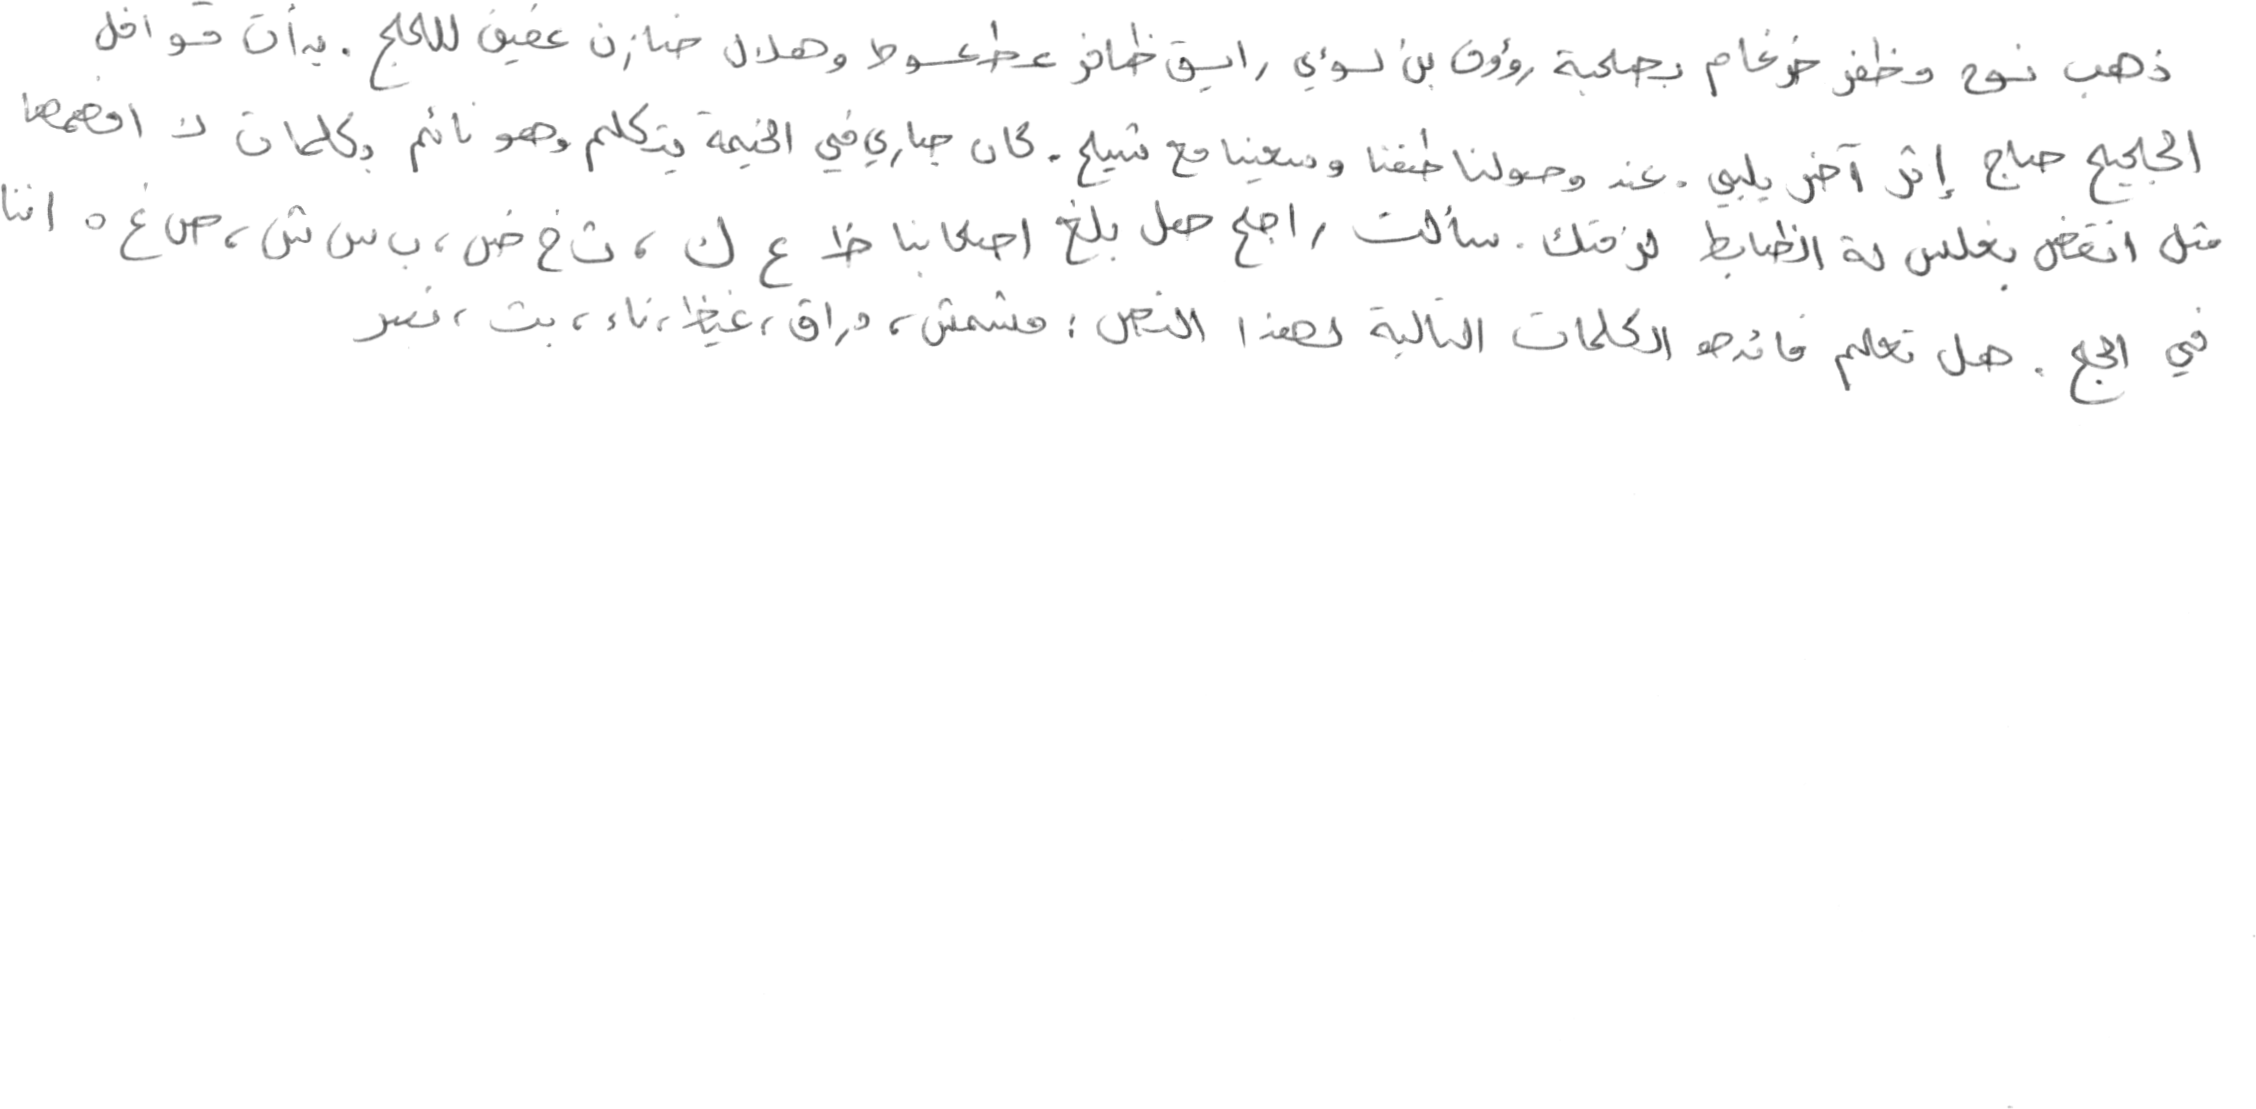 ذهب نوح مظفر ضرغام بصحبة رؤوف بن لؤي رايق ظافر عطعوط وهلال خازن عفيف للحج . بدأت قوافل
الحجيج حاج إثر آخر يلبي . عند وصولنا طفنا وسعينا مع شيخ . كان جاري في الخيمة يتكلم وهو نائم بكلمات لا افهمها
مثل انقض بغلس لة الظابط لزقتك . سألت راجح هل بلغ اصحابنا ظ ع ك ، ث خ ض ، ب س ش ، ص غ ه اننا
في الحج . هل تعلم فائدة الكلمات التالية لهذا النص : مشمش ، دراق ، غيظ ، ناء ، بث ، نسر